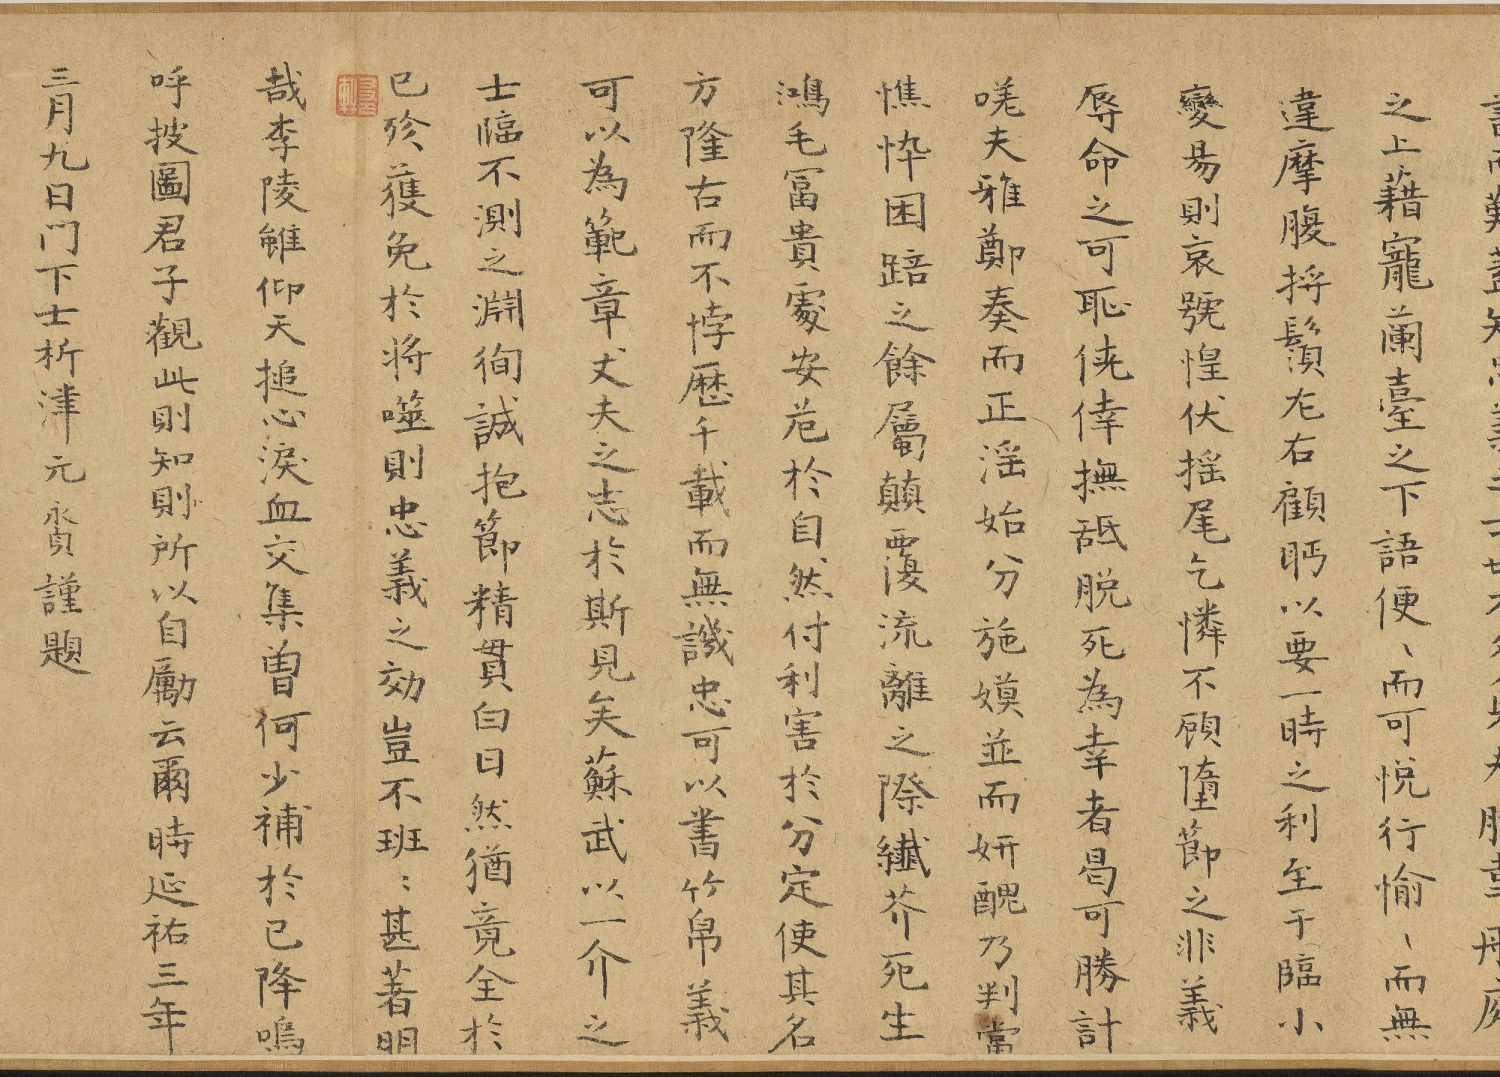 之上藉寵蘭臺之下語便、而可悅行愉、而無
違摩腹捋鬚左右顧眄以要一時之利至于臨小
變易則哀號惶伏搖尾乞憐不顧墮節之非義
辱命之可恥俠倖撫舐脫死為幸者曷可勝計
嗟夫雅鄭奏而正淫始分施嫫並而妍醜乃判當
憔悴困踣之餘屬顛覆流離之際纖芥死生
鴻毛冨貴處安危於自然付利害於分定使其名
方隆古而不悖歷千載而無譏忠可以書竹帛義
可以為範章丈夫之志於斯見矣蘇武以一介之
士臨不測之淵徇誠抱節精貫白日然猶竟全於
已殄獲免於將噬則忠義之効豈不班〻甚著明
哉李陵雖仰天搥心淚血交集曽何少補於已降嗚
呼披圖君子觀此則知則所以自勵云爾時延祐三年
三月九日門下士析津元永賁謹題